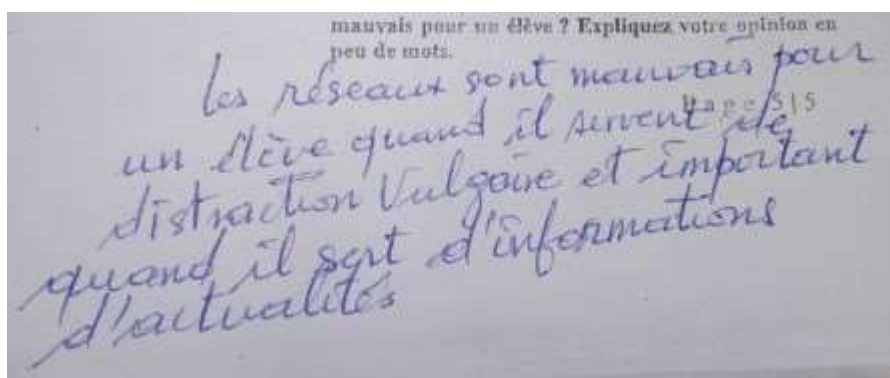 mauvais pour un élève ? Expliquez votre opinion en
peu de mots.
Les réseaux sont mauvais pour
Page 5|5
un élève quand il servent de
distraction Vulgaire et important
quand il sert d'informations
d'actualités